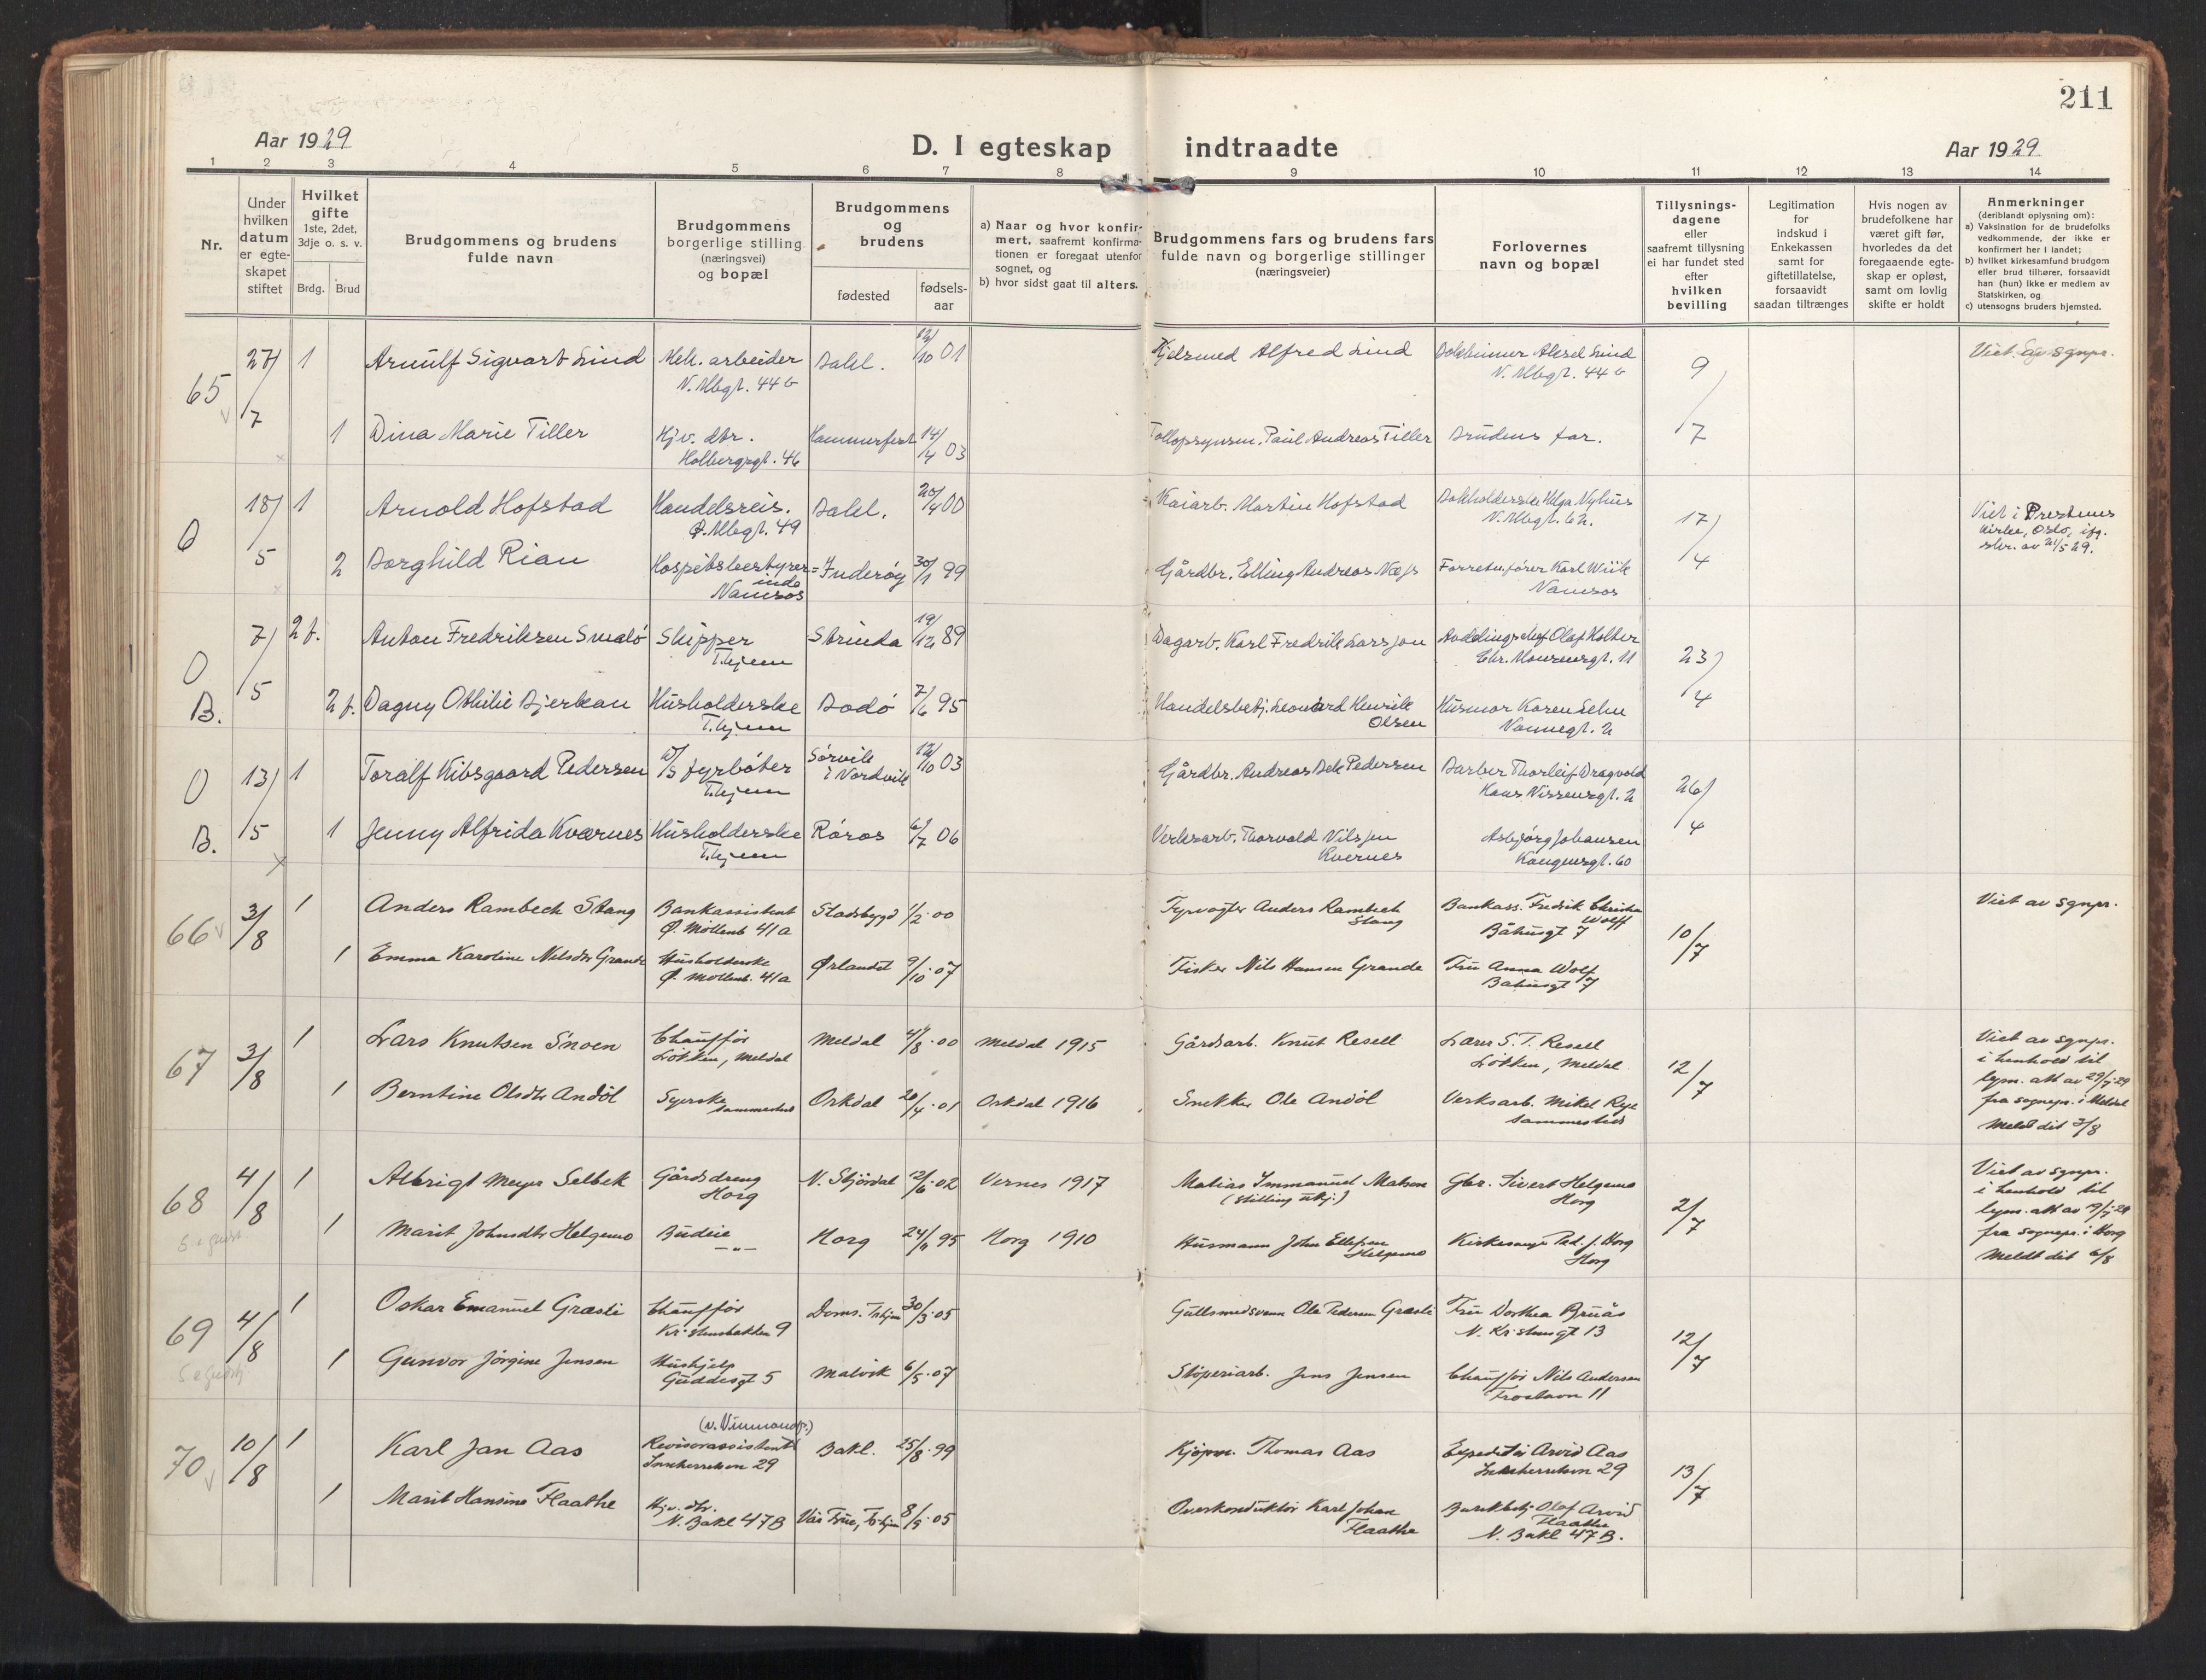 211
Aar 1929
D. I egteskap indtraadte
Aar 1929
1 2 3 4 5 6 7 8 9 10 11 12 13 14
Nr.
Under hvilken datum er egte-skapet stiftet
Hvilket gifte 1ste, 2det, 3dje o. s. v.
Brdg. Brud
Brudgommens og brudens fulde navn
Brudgommens borgerlige stilling (næringsvei) og bopæl
Brudgommens og brudens
fødested
fødsels-aar
a) Naar og hvor konfir-mert, saafremt konfirma-tionen er foregaat utenfor sognet, og
b) hvor sidst gaat til alters.
Brudgommens fars og brudens fars fulde navn og borgerlige stillinger (næringsveier)
Forlovernes navn og bopæl
Tillysnings-dagene eller saafremt tillysning ei har fundet sted efter hvilken bevilling
Legitimation for indskud i Enkekassen samt for giftetillatelse, forsaavidt saadan tiltrænges
Hvis nogen av brudefolkene har været gift før, hvorledes da det foregaaende egte-skap er opløst, samt om lovlig skifte er holdt
Anmerkninger (deriblandt oplysning om):
a) Vaksination for de brudefolks vedkommende, der ikke er konfirmert her i landet;
b) hvilket kirkesamfund brudgom eller brud tilhører, forsaavidt han (hun) ikke er medlem av Statskirken, og
c) utensogns bruders hjemsted.
65 27/7 1 Arnulf Sigvart Lind Mek. arbeider Bakl. 12/10 01 Alfred Lind Aksel Lind 9/7 Viet av sgnpr.
N. Mbgt. 44 b N. Mbgt. 44 b
1 Dina Marie Tiller Hjv. dtr. Hammerfest 14/4 03 Paul Andreas Tiller Brudens far.
Holbergsgt. 46
O 18/5 1 Arnold Hofstad Handelsreis. Bakl. 20/4 00 Kaiarb. Martin Hofstad Helga Nyhus 17/4 Viet i
Ø. Mbgt. 49 N. Mbgt. kirke, Oslo, ifg.
skr. av 21/5 29.
2 Borghild Rian Hospitsbestyrer=inde Inderøy 30/1 99 Gårdbr. Elling Andreas Næss Forretn.fører Karl Wiik
Namsos Namsos
O B. 7/5 2 f. Anton Fredriksen Smalø Skipper Strinda 19/12 89 Dagarb. Karl Fredrik Larsson Olaf Holter 23/4
T.hjem
2 f. Dagny Othilie Bjerkan Husholderske Bodø 7/6 95 Handelsbetj. Leonard Henrik Olsen Husmor Karen Lehn
T.hjem
O B. 13/5 1 Toralf Kibsgaard Pedersen fyrbøter Sørvik i Nordvik 12/10 03 Gårdbr. Andreas Pedersen Barber Thorleif Dragvold 26/4
T.hjem Hans Nissensgt. 2
1 Jenny Alfrida Kværnes Husholderske Røros 06 Verksarb. Thorvold Nilssen Kvernes Asbjørg Johansen
T.hjem Kongensgt. 60
66 3/8 1 Anders Rambech Stang Bankassistent Stadsbygd 1/2.00 Fyrvogter Anders Rambech Stang Bankass. Fredrik Christian Wolff 10/7 Viet av sgnpr.
Ø. Møllenb 41a Båhusgt 7
1 Emma Karoline Nilsdtr Grande Husholderske Ørlandet 9/10.07 Fisker Nils Hansen Grande Fru Anna Wolf
Ø. Møllenb. 41a Bahusgt 7
67 3/8 1 Lars Knutsen Snoen Chauffør Meldal 4/8.00 Meldal 1915 Gårdsarb. Knut Resell Lærer S. T. Resell 12/7 Viet av sgnpr.
Løkken, Meldal Løkken, Meldal i henhold til
lysn. att av 29/7-29
1 Berntine Olsdtr Andøl Syerske Orkdal 20/4.01 Orkdal 1916 Snekker Ole Andøl Verksarb. Mikel Rye fra sognepr. i Meldal
sammesteds sammesteds Meldt dit 3/8
68 4/8 1 Albrigt Meyer Selbek Gårdsdreng N. Stjørdal 12/6.02 Vernes 1917 Matias Immanuel Matsen Gbr. Sivert Helgemo 2/7 Viet av sgnpr.
Horg (stilling ukj.) Horg i henhold til
lysn. att av 19/7-29
1 Marit Johnsdtr Helgemo Budeie Horg 24/11 95 Horg 1910 Husmann John Ellefsen Helgemo Horg fra sognepr. i Horg
Meldt dit 6/8
69 4/8 1 Oskar Emanuel Græsli Chauffør Doms. T.hjem 30/3.05 Gullsmedsvenn Ole Pedersen Græsli Fru Dorthea Bruås 12/7
Kristiansbakken 9 N. Kristiansgt 13
1 Gunvor Jørgine Jensen Hushjelp Malvik 6/5.07 Støperiarb. Jens Jensen Chauffør Nils Andersen
5
70 10/8 1 Karl Jan Aas Revisorassistent Bakl. 25/8.99 Kjøpm. Thomas Aas Expeditør Arvid Aas 13/7
Innherredsvn 29 Innherredsvn 29
1 Marit Hansine Flaathe Hjv. dtr. Vår Frue, T.hjem 8/9.05 Overkonduktør Karl Johan Flaathe Butikkbetj. Olaf Arvid Flaathe
N. Bakl 47B N. Bakl 47B.